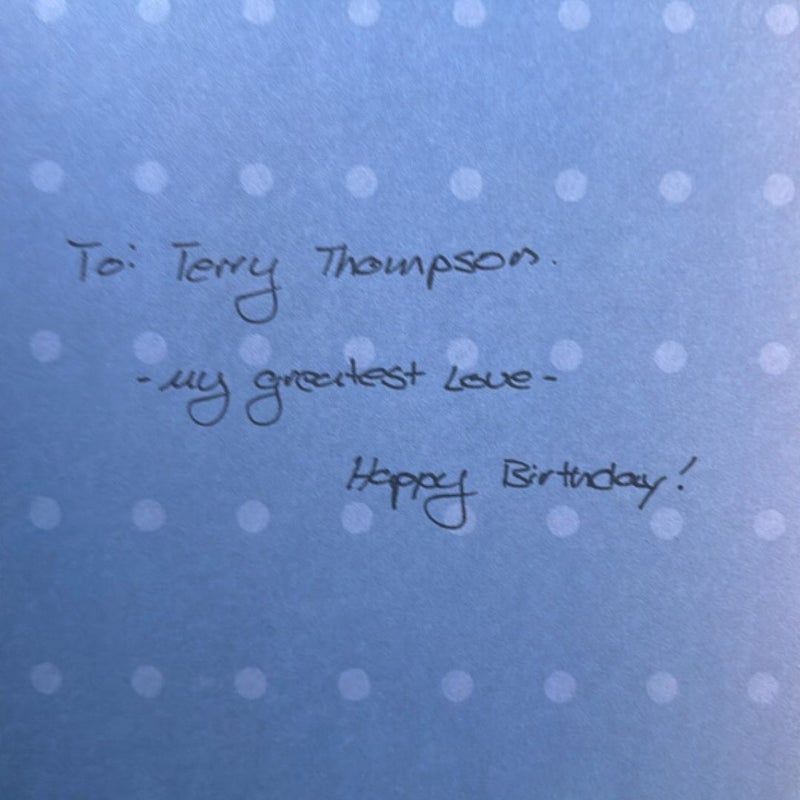 To: Terry Thompson.
-my greatest Love-
Happy Birthday!